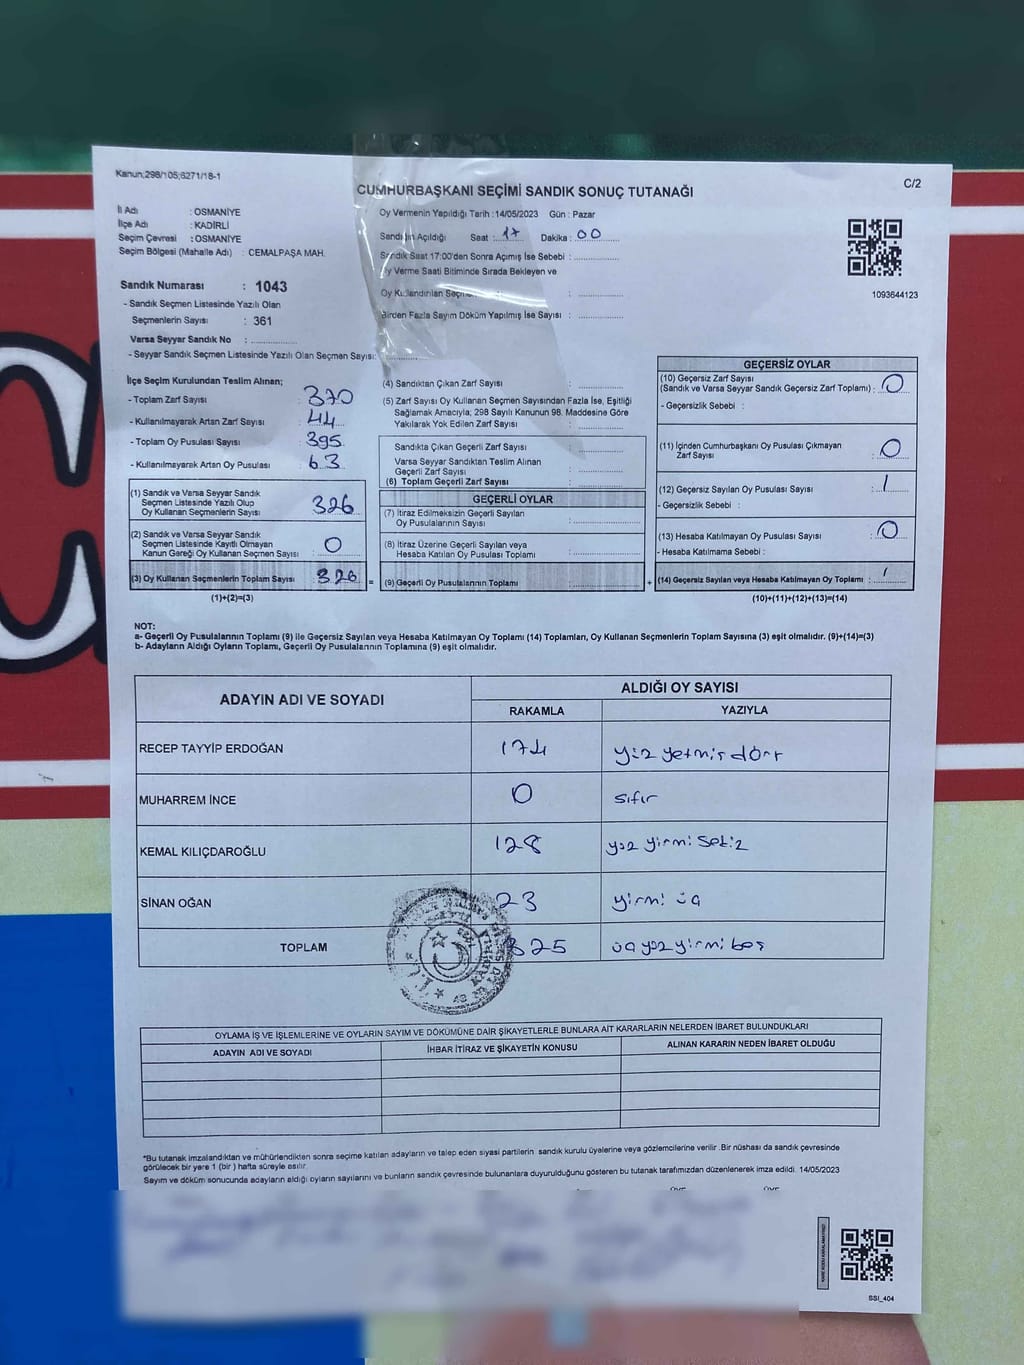 Kanun;298/105;6271/18-1
CUMHURBAŞKANI SEÇİMİ SANDIK SONUÇ TUTANAĞI
C/2
İl Adı : OSMANİYE
İlçe Adı : KADİRLİ
Seçim Çevresi : OSMANİYE
Seçim Bölgesi (Mahalle Adı) : CEMALPAŞA MAH.
Oy Vermenin Yapıldığı Tarih :14/05/2023 Gün : Pazar
Sandığın Açıldığı Saat : 17 Dakika : 00
Sandık Saat 17:00'den Sonra Açımış İse Sebebi :
Oy Verme Saati Bitiminde Sırada Bekleyen ve
Oy Kullandırılan :
Birden Fazla Sayım Döküm Yapılmış İse Sayısı :
1093644123
Sandık Numarası : 1043
- Sandık Seçmen Listesinde Yazılı Olan
Seçmenlerin Sayısı : 361
Varsa Seyyar Sandık No :
- Seyyar Sandık Seçmen Listesinde Yazılı Olan Seçmen Sayısı:
İlçe Seçim Kurulundan Teslim Alınan;
- Toplam Zarf Sayısı : 370
- Kullanılmayarak Artan Zarf Sayısı : 44
- Toplam Oy Pusulası Sayısı : 395
- Kullanılmayarak Artan Oy Pusulası : 63
(1) Sandık ve Varsa Seyyar Sandık
Seçmen Listesinde Yazılı Olup
Oy Kullanan Seçmenlerin Sayısı : 326
(2) Sandık ve Varsa Seyyar Sandık
Seçmen Listesinde Kayıtlı Olmayan
Kanun Gereği Oy Kullanan Seçmen Sayısı : 0
(3) Oy Kullanan Seçmenlerin Toplam Sayısı : 326 =
(1)+(2)=(3)
(4) Sandıktan Çıkan Zarf Sayısı :
(5) Zarf Sayısı Oy Kullanan Seçmen Sayısından Fazla İse, Eşitliği
Sağlamak Amacıyla; 298 Sayılı Kanunun 98. Maddesine Göre
Yakılarak Yok Edilen Zarf Sayısı :
Sandıkta Çıkan Geçerli Zarf Sayısı :
Varsa Seyyar Sandıktan Teslim Alınan
Geçerli Zarf Sayısı :
(6) Toplam Geçerli Zarf Sayısı :
GEÇERLİ OYLAR
(7) İtiraz Edilmeksizin Geçerli Sayılan
Oy Pusulalarının Sayısı :
(8) İtiraz Üzerine Geçerli Sayılan veya
Hesaba Katılan Oy Pusulası Toplamı :
(9) Geçerli Oy Pusulalarının Toplamı : +
GEÇERSİZ OYLAR
(10) Geçersiz Zarf Sayısı
(Sandık ve Varsa Seyyar Sandık Geçersiz Zarf Toplamı) : 0
- Geçersizlik Sebebi :
(11) İçinden Cumhurbaşkanı Oy Pusulası Çıkmayan
Zarf Sayısı : 0
(12) Geçersiz Sayılan Oy Pusulası Sayısı : 1
- Geçersizlik Sebebi :
(13) Hesaba Katılmayan Oy Pusulası Sayısı : 0
- Hesaba Katılmama Sebebi :
(14) Geçersiz Sayılan veya Hesaba Katılmayan Oy Toplamı : 1
(10)+(11)+(12)+(13)=(14)
NOT:
a- Geçerli Oy Pusulalarının Toplamı (9) ile Geçersiz Sayılan veya Hesaba Katılmayan Oy Toplamı (14) Toplamları, Oy Kullanan Seçmenlerin Toplam Sayısına (3) eşit olmalıdır. (9)+(14)=(3)
b- Adayların Aldığı Oyların Toplamı, Geçerli Oy Pusulalarının Toplamına (9) eşit olmalıdır.
ADAYIN ADI VE SOYADI
ALDIĞI OY SAYISI
RAKAMLA YAZIYLA
RECEP TAYYİP ERDOĞAN 174 yüz yetmiş dört
MUHARREM İNCE 0 sıfır
KEMAL KILIÇDAROĞLU 128 yüz yirmi sekiz
SİNAN OĞAN 23 yirmi üç
TOPLAM 325 üç yüz yirmi beş
OYLAMA İŞ VE İŞLEMLERİNE VE OYLARIN SAYIM VE DÖKÜMÜNE DAİR ŞİKAYETLERLE BUNLARA AİT KARARLARIN NELERDEN İBARET BULUNDUKLARI
ADAYIN ADI VE SOYADI İHBAR İTİRAZ VE ŞİKAYETİN KONUSU ALINAN KARARIN NEDEN İBARET OLDUĞU
*Bu tutanak imzalandıktan ve mühürlendikten sonra seçime katılan adayların ve talep eden siyasi partilerin sandık kurulu üyelerine veya gözlemcilerine verilir .Bir nüshası da sandık çevresinde
görülecek bir yere 1 (bir ) hafta süreyle asılır.
Sayım ve döküm sonucunda adayların aldığı oyların sayılarını ve bunların sandık çevresinde bulunanlara duyurulduğunu gösteren bu tutanak tarafımızdan düzenlenerek imza edildi. 14/05/2023
SSI_404